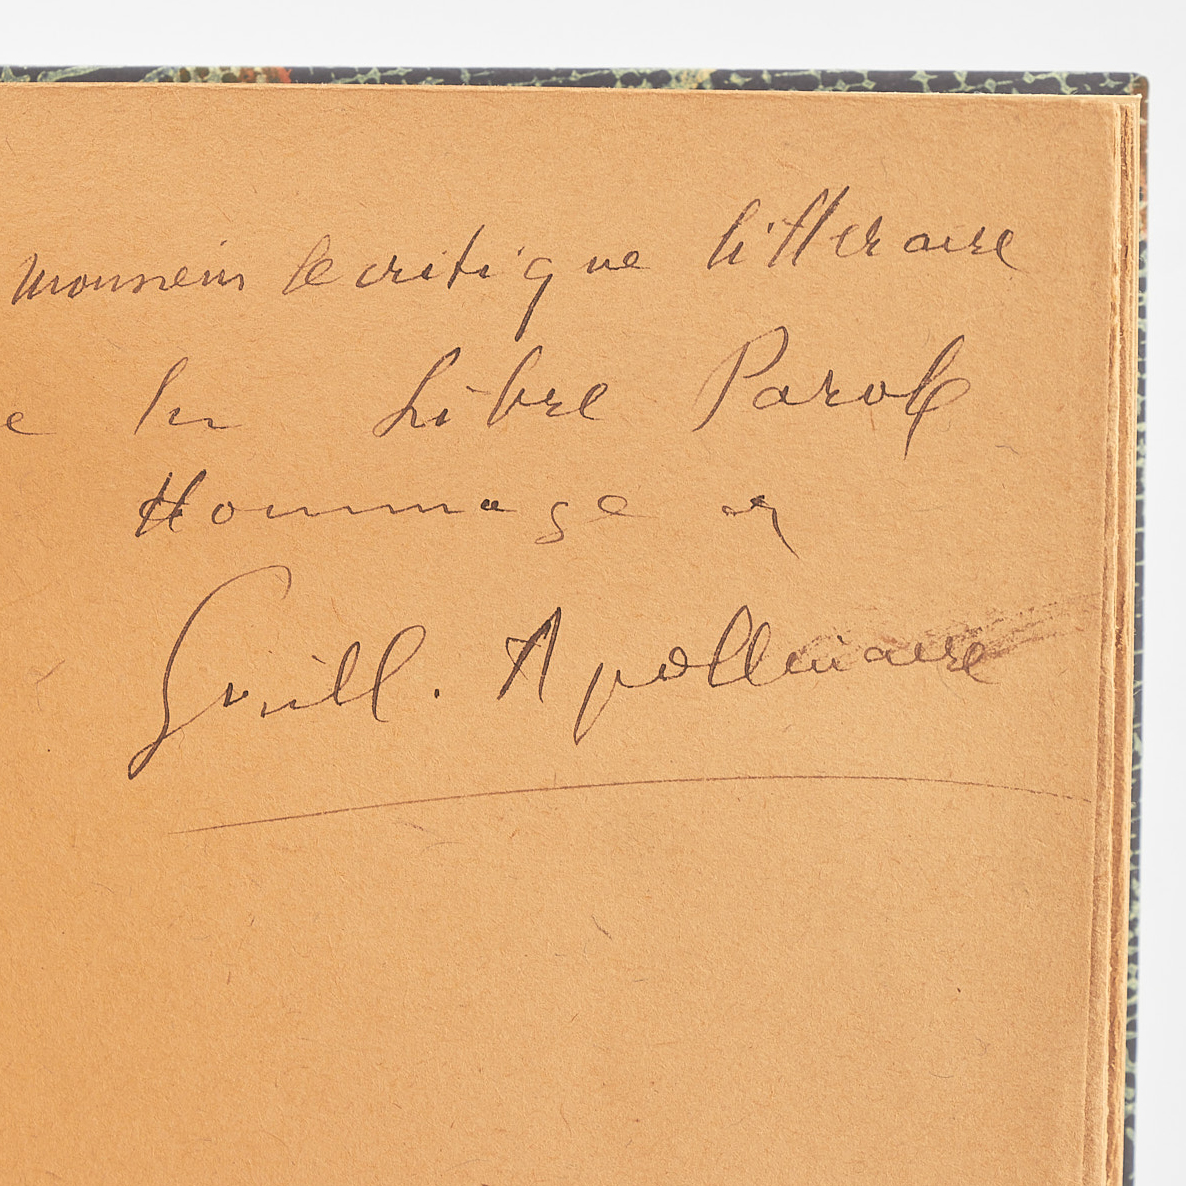 monsieur le critique littéraire
e la Libre Parole
Hommage de
Guill. Apollinaire